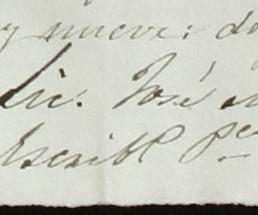 y nueve: do
Lic. José
Escrib